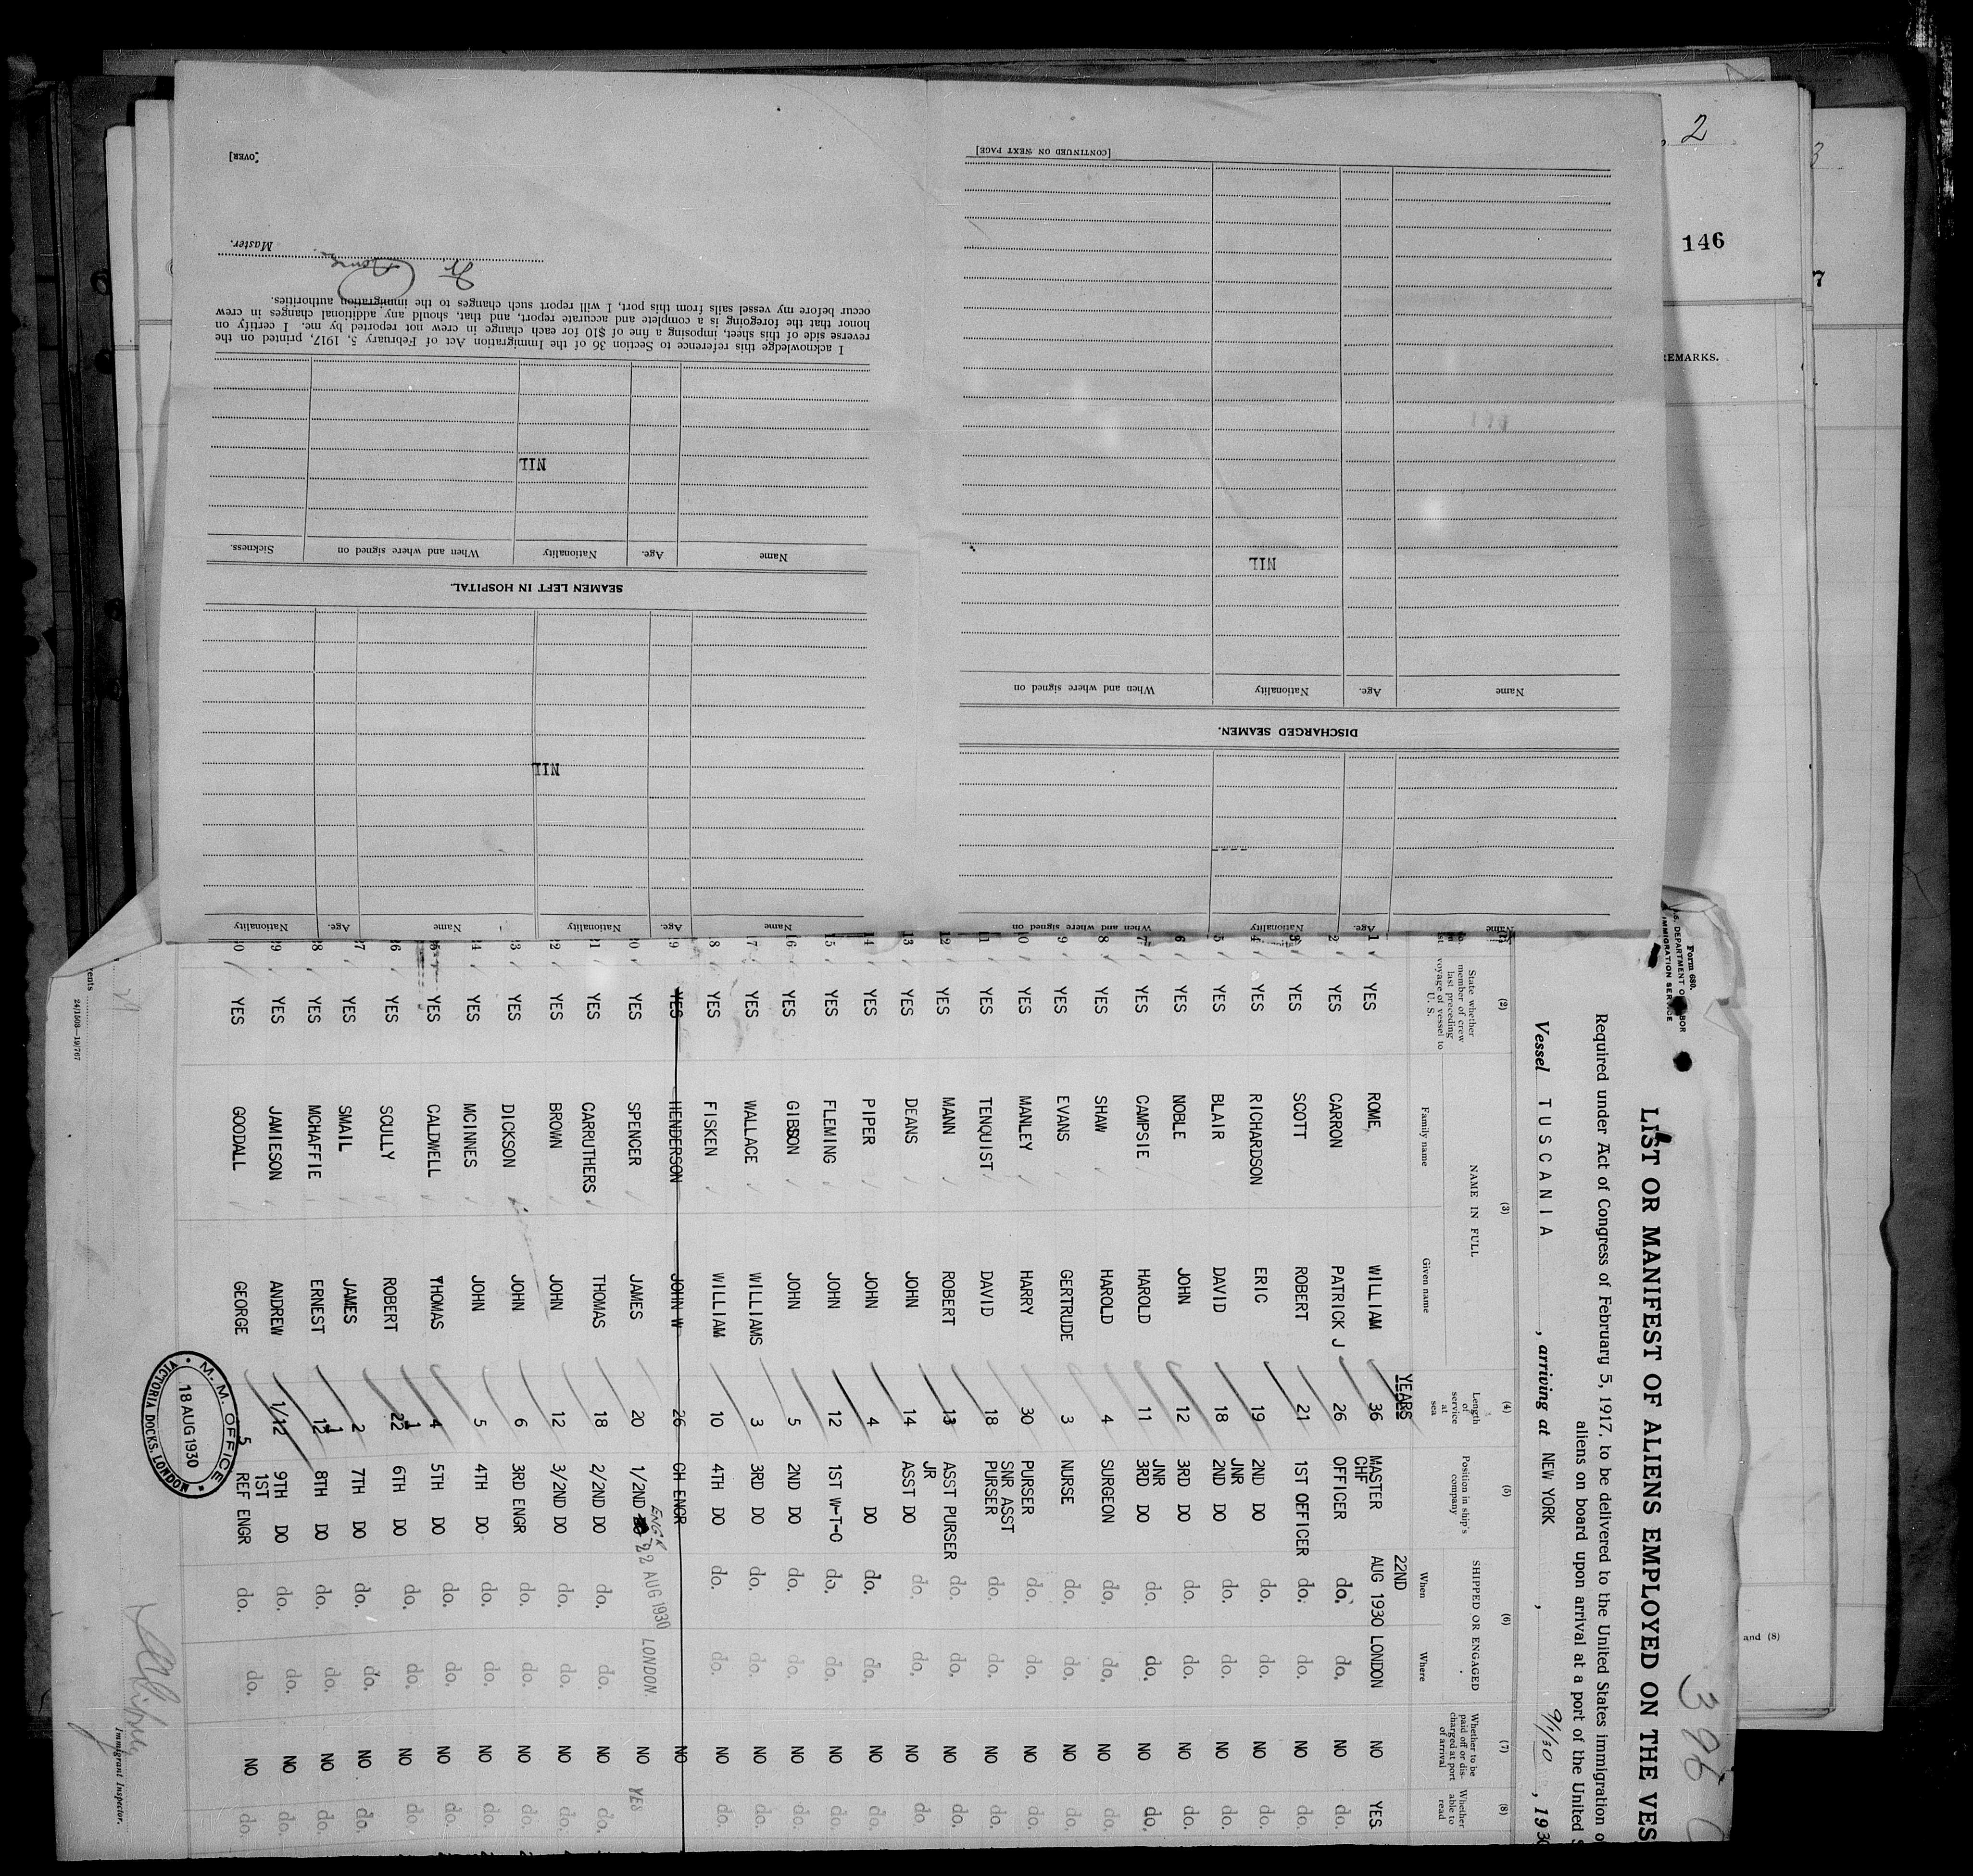 [CONTINUED ON NEXT PAGE]
[OVER]
Master.
I acknowledge this reference to Section 36 of the Immigration Act of February 5, 1917, printed on the
reverse side of this sheet, imposing a fine of $10 for each change in crew not reported by me. I certify on
honor that the foregoing is a complete and accurate report, and that, should any additional changes in crew
occur before my vessel sails from this port, I will report such changes to the immigration authorities.
NIL
Name Age. Nationality When and where signed on Sickness.
SEAMEN LEFT IN HOSPITAL.
NIL
Name Age. Nationality Name Age. Nationality
NIL
Name Age. Nationality When and where signed on
DISCHARGED SEAMEN.
Name Age. Nationality When and where signed on
2
3
146
7
REMARKS.
and (8)
396
Form 680.
U.S. DEPARTMENT OF LABOR
IMMIGRATION SERVICE
LIST OR MANIFEST OF ALIENS EMPLOYED ON THE VES
Required under Act of Congress of February 5, 1917, to be delivered to the United States immigration o
aliens on board upon arrival at a port of the United S
Vessel TUSCANIA, arriving at NEW YORK, 9/1/30, 193
(1) (2) (3) (4) (5) (6) (7) (8)
State whether member of crew last preceding voyage of vessel to U. S.
NAME IN FULL
Family name Given name
Length of service at sea
Position in ship's company
SHIPPED OR ENGAGED
When Where
Whether to be paid off or discharged at port of arrival
Whether able to read
YEARS
22ND
1 YES ROME, WILLIAM 36 MASTER AUG 1930 LONDON NO YES
2 YES CARRON PATRICK J 26 CHF OFFICER do. do. NO do.
3 YES SCOTT ROBERT 21 1ST OFFICER do. do. NO do.
4 YES RICHARDSON ERIC 19 2ND DO do. do. NO do.
5 YES BLAIR DAVID 18 JNR 2ND DO do. do. NO do.
6 YES NOBLE JOHN 12 3RD DO do. do. NO do.
7 YES CAMPSIE HAROLD 11 JNR 3RD DO do. do. NO do.
8 YES SHAW HAROLD 4 SURGEON do. do. NO do.
9 YES EVANS GERTRUDE 3 NURSE do. do. NO do.
10 YES MANLEY HARRY 30 PURSER do. do. NO do.
11 YES TENQUIST DAVID 18 SNR ASST PURSER do. do. NO do.
12 YES MANN ROBERT 13 ASST PURSER do. do. NO do.
13 YES DEANS JOHN 14 JR ASST DO do. do. NO do.
14 YES PIPER JOHN 4 DO do. do. NO do.
15 YES FLEMING JOHN 12 1ST W-T-O do. do. NO do.
16 YES GIBSON JOHN 5 2ND DO do. do. NO do.
17 YES WALLACE WILLIAMS 3 3RD DO do. do. NO do.
18 YES FISKEN WILLIAM 10 4TH DO do. do. NO do.
19 YES HENDERSON JOHN W 26 CH ENGR NO
20 YES SPENCER JAMES 20 1/2ND ENGR 22 AUG 1930 LONDON. NO YES
21 YES CARRUTHERS THOMAS 18 2/2ND DO do. do. NO do.
22 YES BROWN JOHN 12 3/2ND DO do. do. NO do.
23 YES DICKSON JOHN 6 3RD ENGR do. do. NO do.
24 YES MCINNES JOHN 5 4TH DO do. do. NO do.
25 YES CALDWELL THOMAS 4 5TH DO do. do. NO do.
26 YES SCULLY ROBERT 5 6TH DO do. do. NO do.
27 YES SMAIL JAMES 2 7TH DO do. do. NO do.
28 YES MCHAFFIE ERNEST 8TH DO do. do. NO do.
29 YES JAMIESON ANDREW 1/12 9TH DO do. do. NO do.
30 YES GOODALL GEORGE 5 1ST REF ENGR do. do. NO do.
M. M. OFFICE
18 AUG 1930
VICTORIA DOCKS. LONDON
Immigrant Inspector.
24/1508—19/767